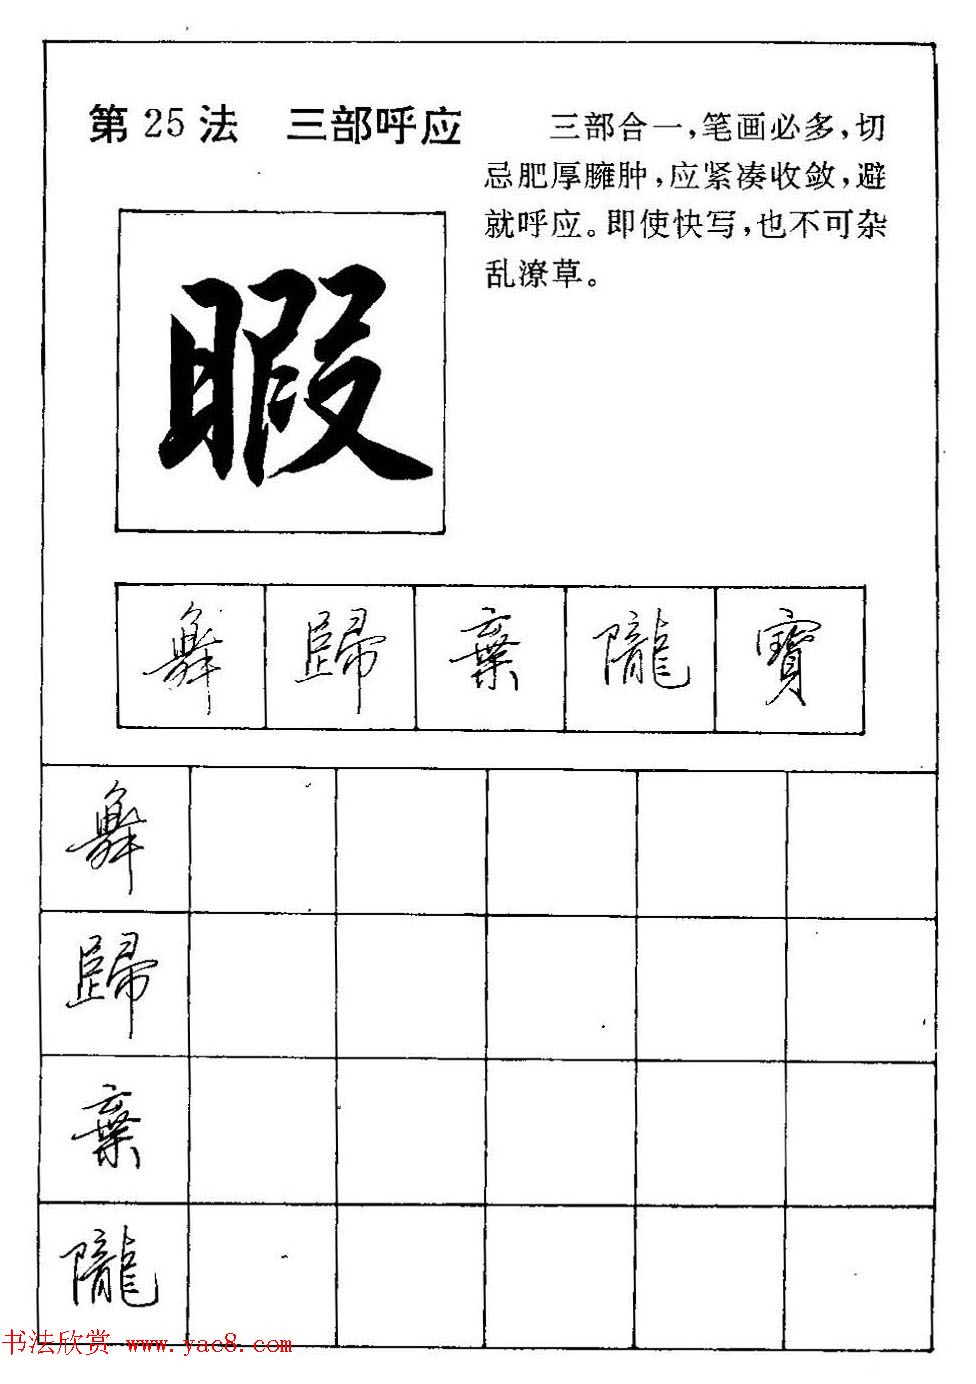 第25法 三部呼应
三部合一，笔画必多，切
忌肥厚臃肿，应紧凑收敛，避
就呼应。即使快写，也不可杂
乱潦草。
暇
舞 歸 棄 隴 寶
舞
歸
棄
隴
书法欣赏 www.yac8.com